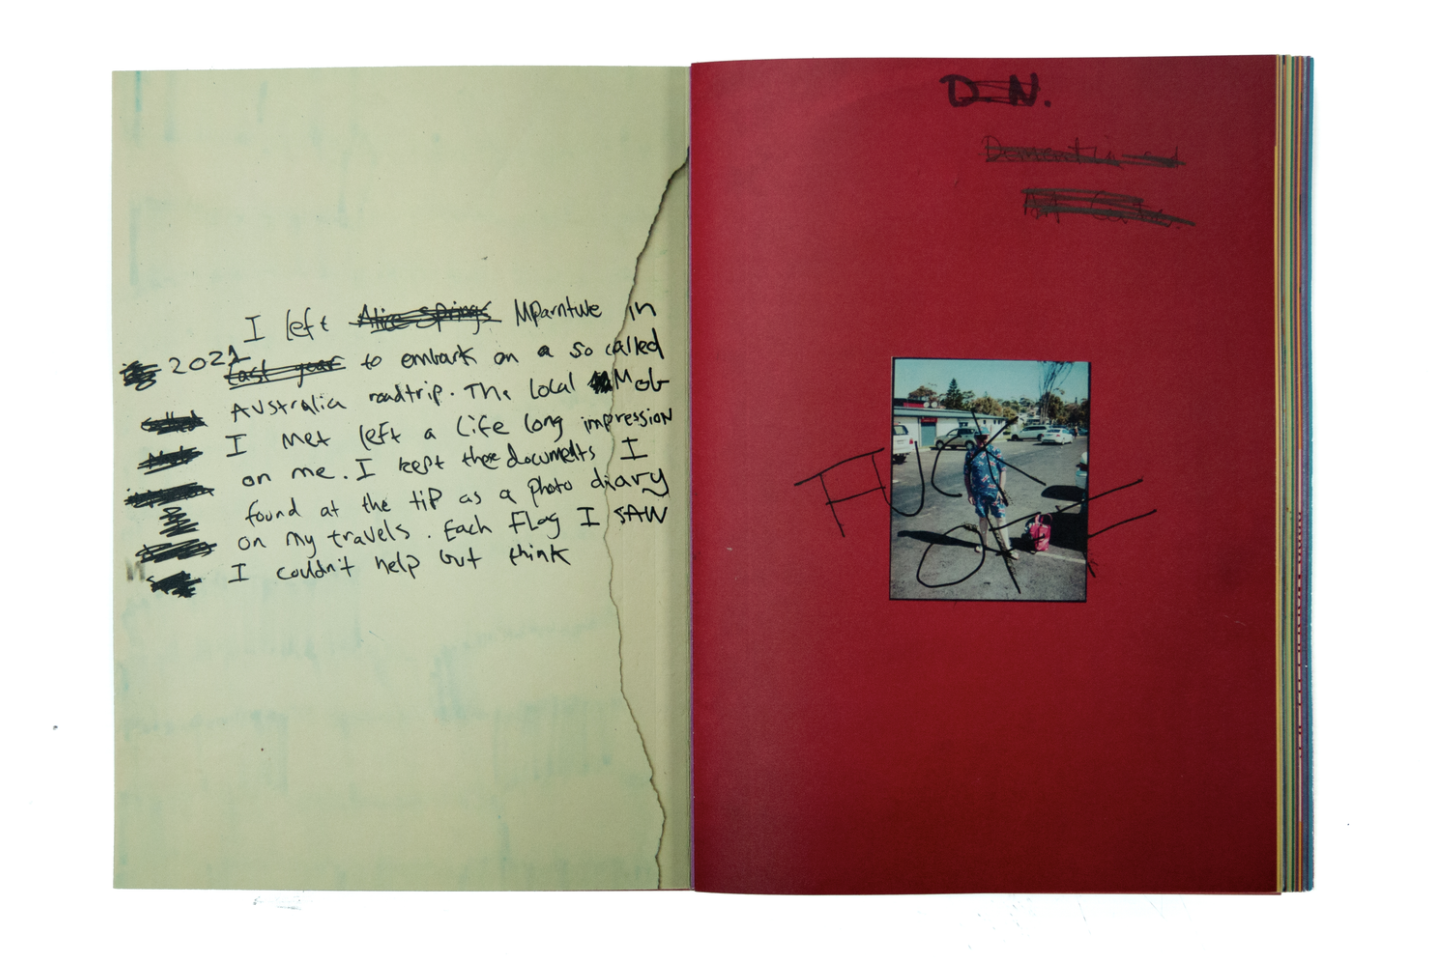 I left Alice Springs Mparntwe in
2021 last year to embark on a so called
Australia roadtrip. The local Mob
I met left a life long impression
on me. I kept these documents I
found at the tip as a photo diary
on my travels. Each Flag I SAW
I couldn't help but think
D N.
FUCK
OFF